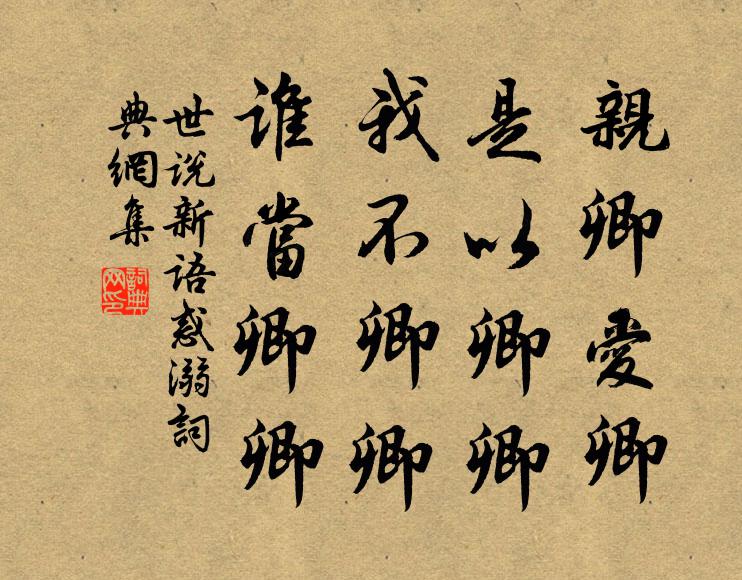 親卿愛卿
是以卿卿
我不卿卿
誰當卿卿
世说新语惑溺詞
典網集
詞典
网印